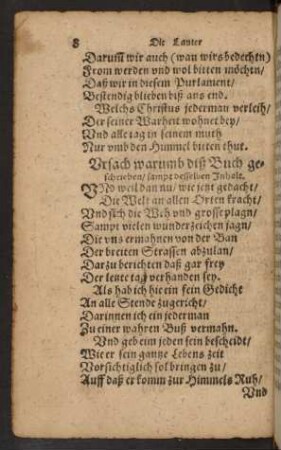 8 Die Lauter
Darumb wir auch (wan wirs bedechtn)
From werden und wol bitten möchtn/
Daß wir in diesem Purlament/
Bestendig blieben biß ans end.
Welchs Christus jederman verleih/
Der seiner Warheit wohnet bey/
Und alle tag in seinem muth
Nur umb den Himmel bitten thut.
Ursach warumb diß Buch ge-
schrieben/ sampt desselben Inhalt.
UNd weil dan nu/ wie jetzt gedacht/
Die Welt an allen Orten kracht/
Und sich die Weh und grosse plagn/
Sampt vielen wunderzeichen jagn/
Die uns ermahnen von der Ban
Der breiten Strassen abzulan/
Darzu berichten daß gar frey
Der letzte tag verhanden sey.
Als hab ich hie ein fein Gedicht
An alle Stende zugericht/
Darinnen ich ein jederman
Zu einer wahren Buß vermahn.
Und geb eim jeden sein bescheidt/
Wie er sein gantze Lebens zeit
Vorsichtiglich sol bringen zu/
Auff daß er komm zur Himmels Ruh/
Und